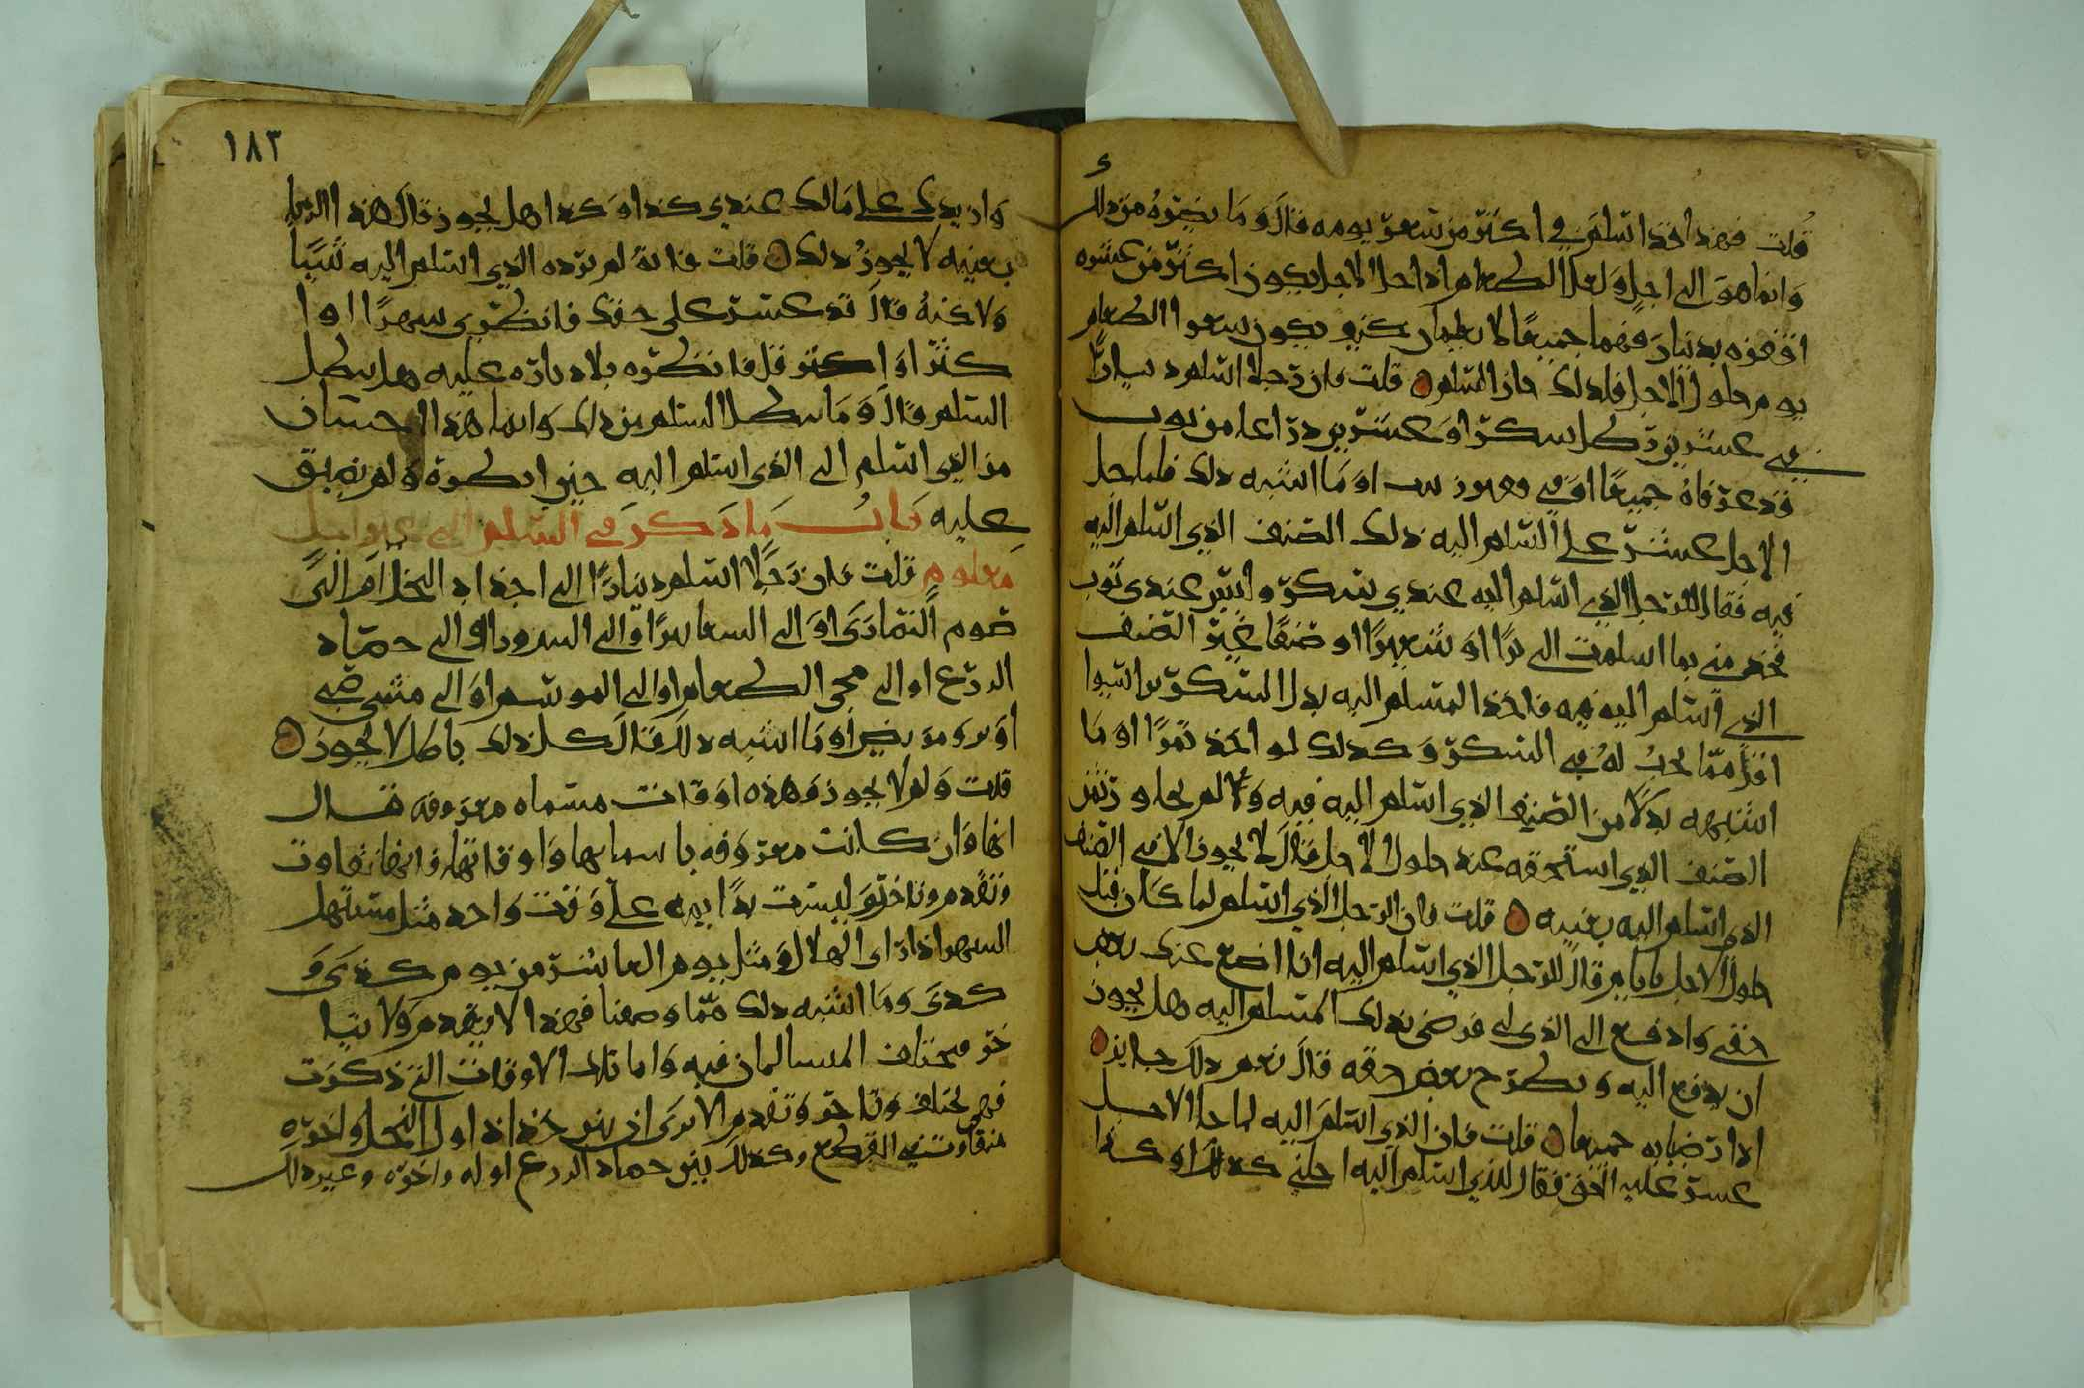 قلت فهذا اخذ اسلم في اكثر من سعر يومه فقال وما يضره من ذلك
وانما هو الى اجل ولعل الطعام اذا حل الاجل يكون اكثر من عشره
اقفزه بدينار فهما جميعا لا يعلمان كيف يكون سعر الطعام
يوم حلول الاجل فلذلك جاز السلم قلت فان رجلا اسلم دينارا
في عشرين رطل سكر او عشرين ذراعا من ثوب
قد عرفاه جميعا او في وما اشبه ذلك فلما حل
الاجل عسر على المسلم اليه ذلك الصنف الذي اسلم اليه
فيه فقال الرجل الذي اسلم اليه عندي سكر وليس عندي ثوب
فخذ مني بما اسلمت الي برا او شعيرا او صنفا غير الصنف
الذي اسلم اليه فيه فاخذ المسلم اليه بدل السكر برا شيوا
اقل مما يجب له في السكر وكذلك لو اخذ تمرا او ما
اشبهه بدلا من الصنف الذي اسلم اليه فيه ولا لم يجاوز ثمن
الصنف الذي استحقه عند حلول الاجل فقال لا يجوز الا في الصنف
الذي اسلم اليه بعينه قلت فان الرجل الذي اسلم لما كان قبل
حلول الاجل بايام قال للرجل الذي اسلم اليه انا اضع عنك بعض
حقي وادفع الي الذي لي فرضي بذلك المسلم اليه هل يجوز
ان يدفع اليه ويطرح بعض حقه قال نعم ذلك جايز
اذا تراضيا به جميعا قلت فان الذي اسلم اليه لما حل الاجل
عسر عليه الحق فقال للذي اسلم اليه اجلني كذا او كذا
١٨٣
وازيدك على مالك عندي كذا وكذا هل يجوز قال هذا الربا
بعينه لا يجوز ذلك قلت فانه لم يزده الذي اسلم اليه شيئا
ولاكنه قال قد عسر علي حقك فانظرني شهرا او ا
كثر او اقل فانظره بلا زياده عليه هل يبطل
السلم قال وما يبطل السلم من ذلك وانما هذا احسان
من الذي اسلم الى الذي اسلم اليه حين انظره ولم يضيق
عليه باب ما ذكر في السلم الى غير اجل
معلوم قلت فان رجلا اسلم دينارا الى اجذاذ النخل ام الى
صوم النصارى او الى السعانين او الى او الى حصاد
الزرع او الى مجي الطعام او الى الموسم او الى متى
او وما اشبه ذلك فقال كل ذلك باطل لا يجوز
قلت ولم لا يجوز وهذه اوقات مسماه معروفه فقال
انها وان كانت معروفه باسمايها واوقاتها فانها تفاوت
وتقدم وتاخر وليست بدايمه على وقت واحد مثل مستهل
الشهر اذا راى الهلال ومثل يوم العاشر من يوم كذى و
كذى وما اشبه ذلك مما وصفنا فهذا لا يتقدم ولا يتا
خر فيختلف المسالمان فيه واما تلك الاوقات التي ذكرت
فهي تختلف وتاخر وتقدم الا ترى ان بين جذاذ اول النخل واخره
متفاوت في القطع وكذلك بين حصاد الزرع اوله واخره وغير ذلك